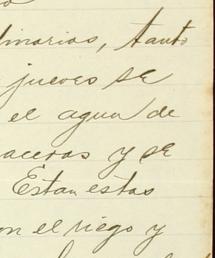 linarias, tanto
jueves se
el agua de
aceras y se
Estan estas
on el riego y